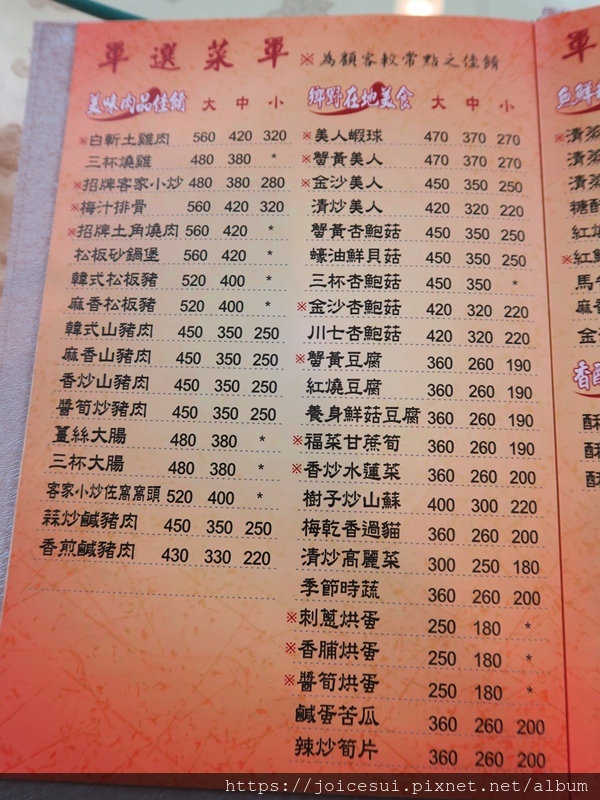 單選菜單 ※為顧客較常點之佳餚
美味肉品佳餚 大 中 小
※白斬土雞肉 560 420 320
三杯燒雞 480 380 *
※招牌客家小炒 480 380 280
※梅汁排骨 560 420 320
※招牌土角燒肉 560 420 *
松板砂鍋煲 560 420 *
韓式松板豬 520 400 *
麻香松板豬 520 400 *
韓式山豬肉 450 350 250
麻香山豬肉 450 350 250
香炒山豬肉 450 350 250
醬筍炒豬肉 450 350 250
薑絲大腸 480 380 *
三杯大腸 480 380 *
客家小炒佐窩窩頭 520 400 *
蒜炒鹹豬肉 450 350 250
香煎鹹豬肉 430 330 220
鄉野在地美食 大 中 小
※美人蝦球 470 370 270
※蟹黃美人 470 370 270
※金沙美人 450 350 250
清炒美人 420 320 220
蟹黃杏鮑菇 450 350 250
蠔油鮮貝菇 450 350 250
三杯杏鮑菇 450 350 *
※金沙杏鮑菇 420 320 220
川七杏鮑菇 420 320 220
※蟹黃豆腐 360 260 190
紅燒豆腐 360 260 190
養身鮮菇豆腐 360 260 190
※福菜甘蔗筍 360 260 190
※香炒水蓮菜 360 260 200
樹子炒山蘇 400 300 220
梅乾香過貓 360 260 200
清炒高麗菜 300 250 180
季節時蔬 360 260 200
※刺蔥烘蛋 250 180 *
※香脯烘蛋 250 180 *
※醬筍烘蛋 250 180 *
鹹蛋苦瓜 360 260 200
辣炒筍片 360 260 200
單
魚鮮
清蒸
清蒸
清蒸
糖醋
紅燒
※紅
馬
麻香
金
香
酥
酥
酥
https://joicesui.pixnet.net/album